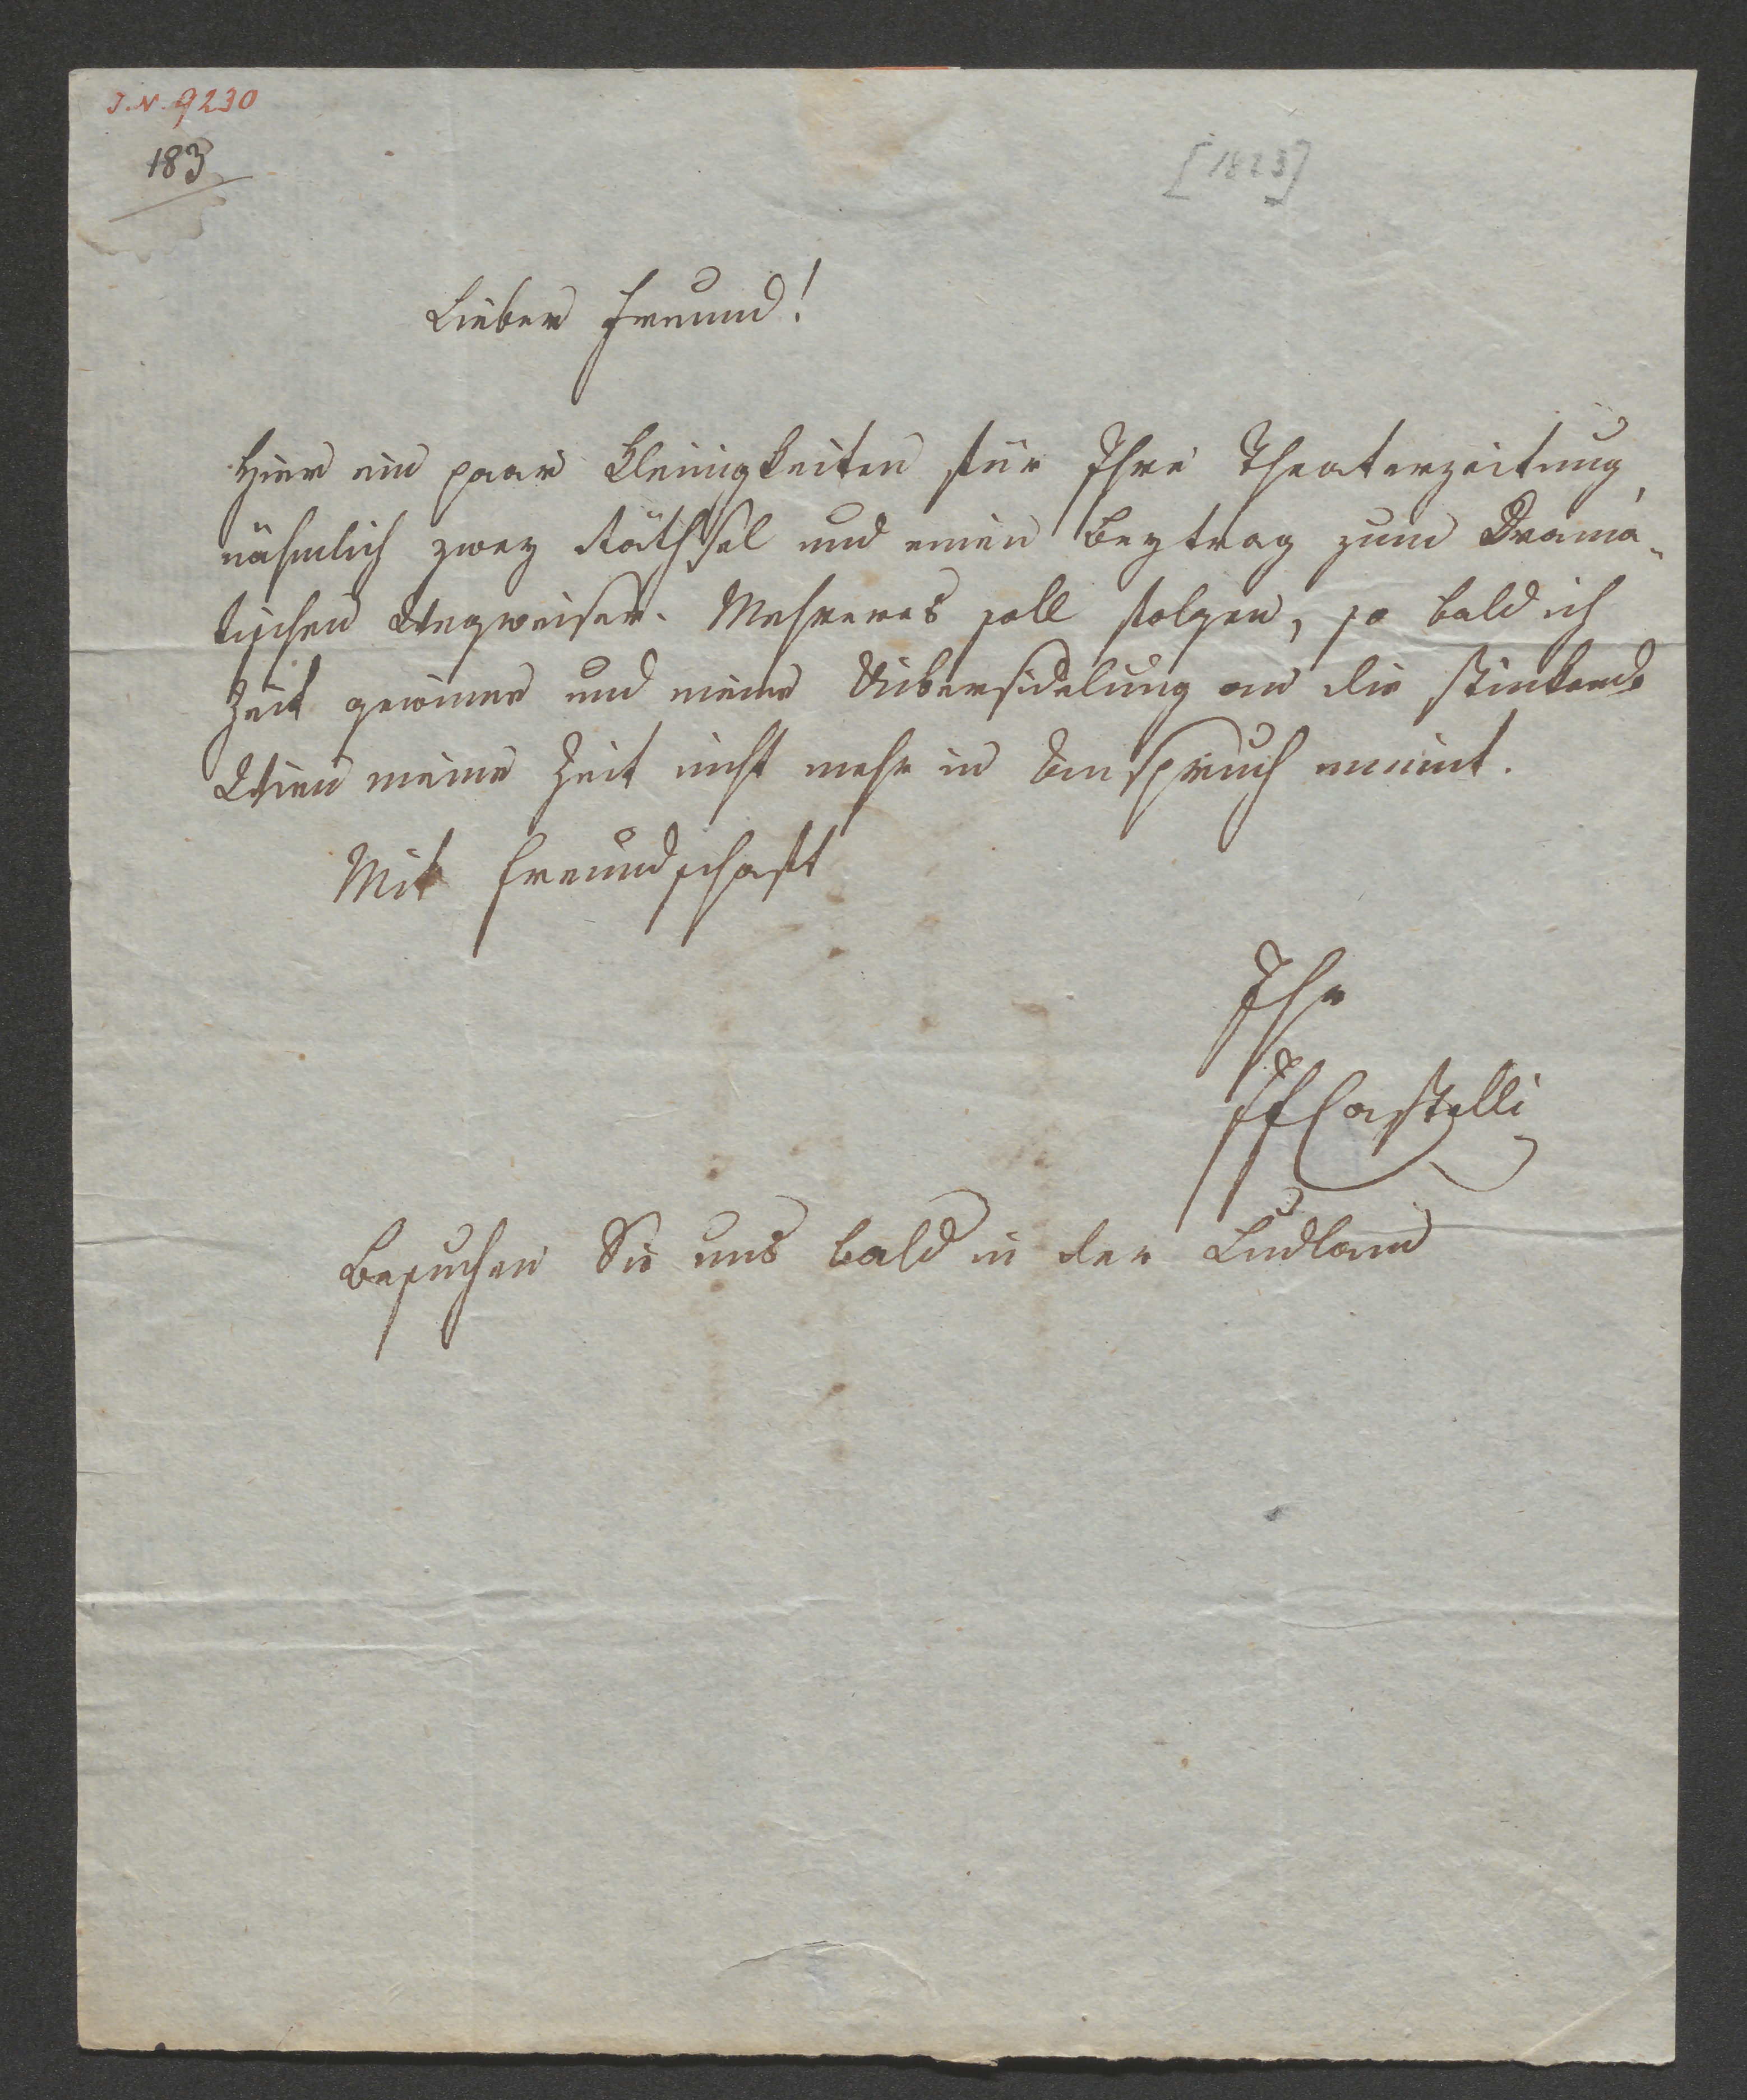 I.N. 9230
183
[1823]
Lieber Freund!
Hier ein paar Kleinigkeiten für Ihre Theaterzeitung,
nähmlich zwey Räthsel und einen Beytrag zum Drama-
tischen Wegweiser. Mehreres soll folgen, so bald ich
Zeit gewinne und meine Uibersidelung an die stinkende
Wien meine Zeit nicht mehr in Anspruch nimmt.
Mit Freundschaft
Ihr
IFCastelli
Besuchen Sie uns bald in der Ludlam